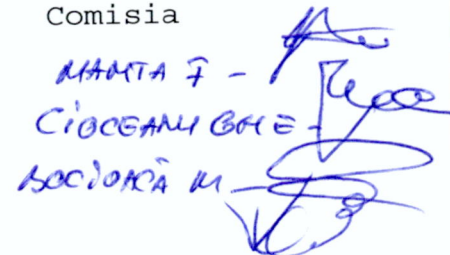 Comisia
MANTA F -
CIOCEANU GHE -
BOCIOACĂ M -